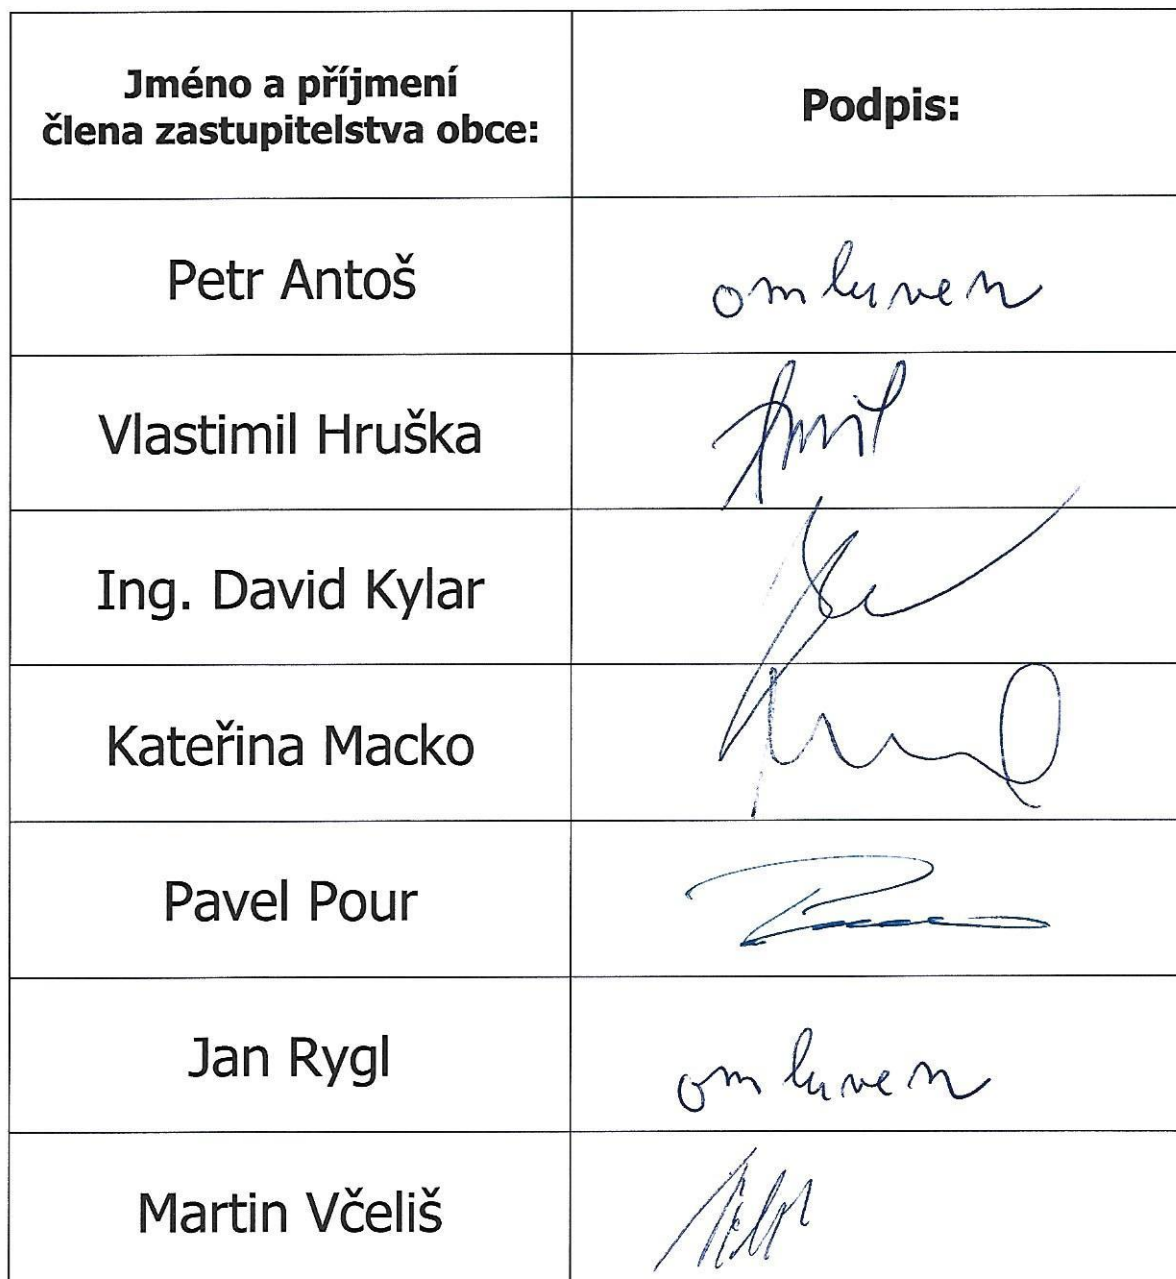 Jméno a příjmení
člena zastupitelstva obce:
Podpis:
Petr Antoš
omluven
Vlastimil Hruška
Ing. David Kylar
Kateřina Macko
Pavel Pour
Jan Rygl
omluven
Martin Včeliš